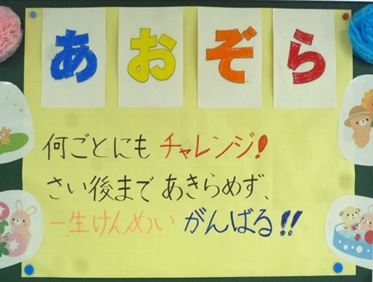 あおぞら
何ごとにもチャレンジ!
さい後まであきらめず、
一生けんめいがんばる!!